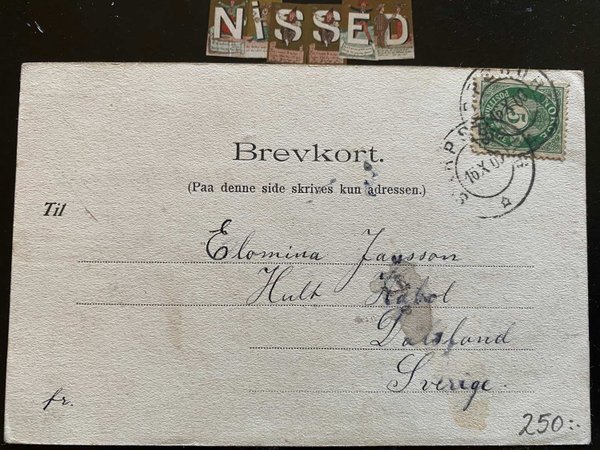 NiSSED
NORGE
5
16 X 0
Brevkort.
(Paa denne side skrives kun adressen.)
Til
Elomina Jansson
Hult Råbol
Dalsland
Sverige.
fr.
250:-